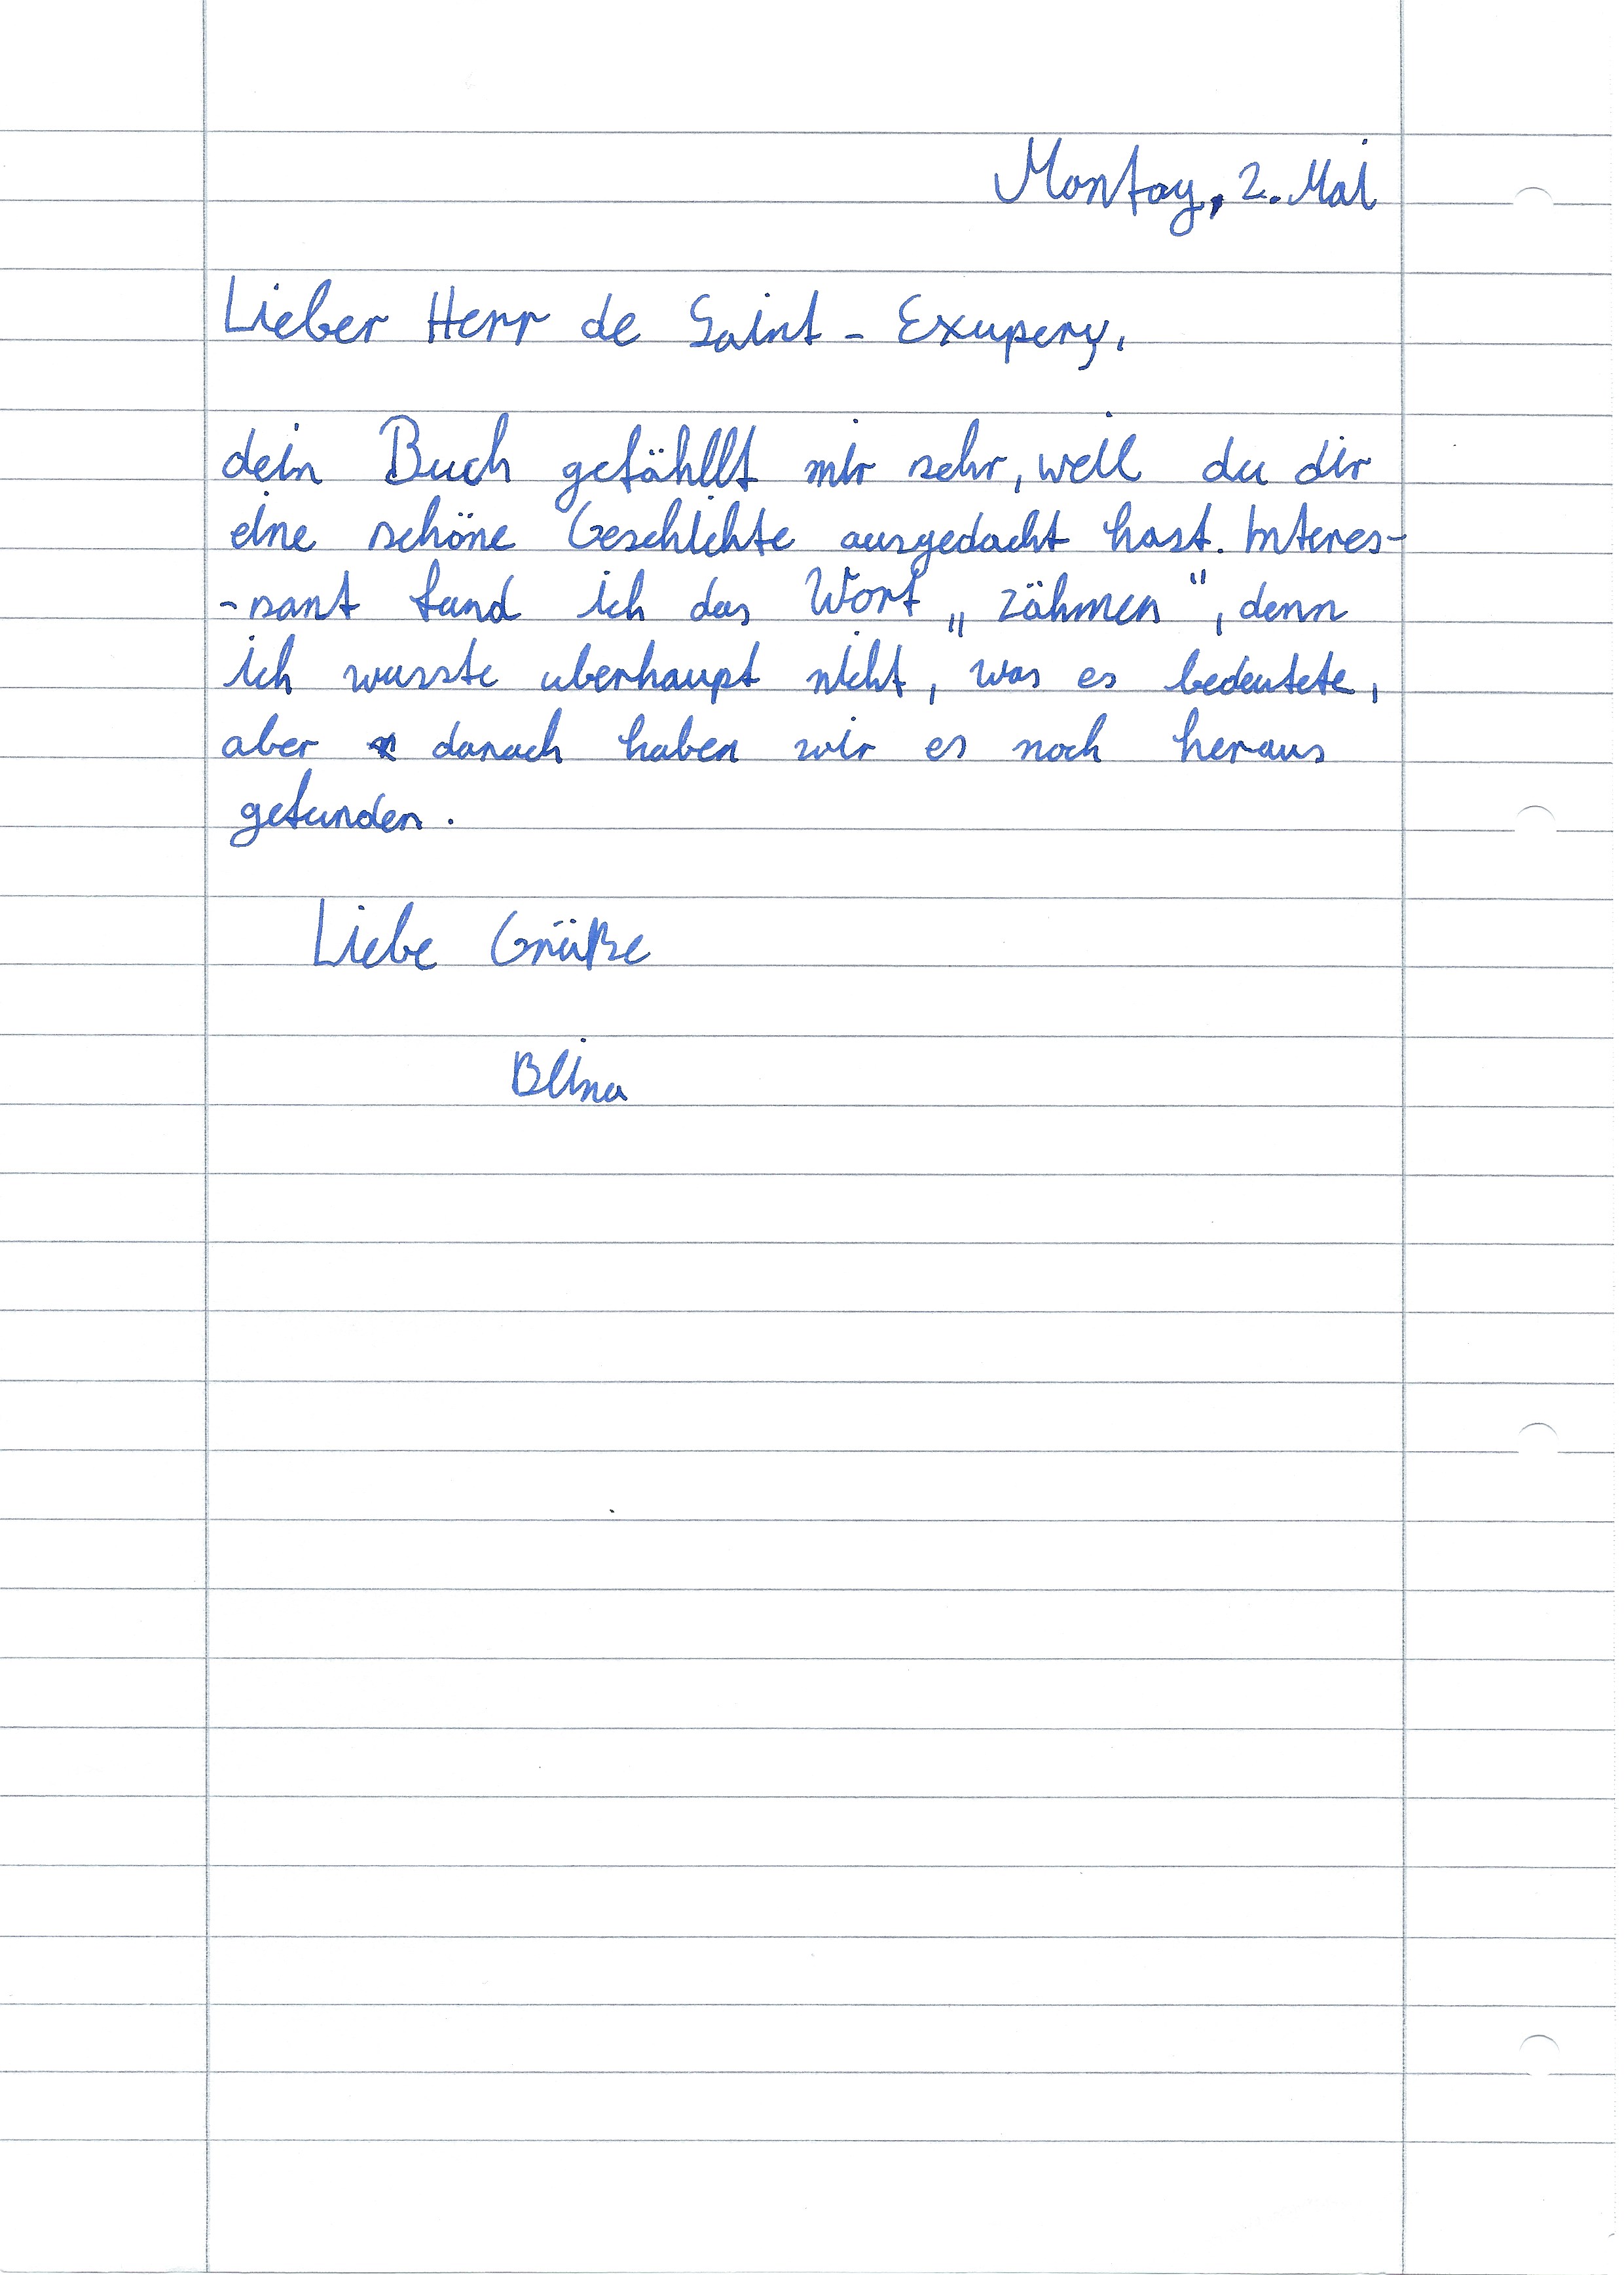 Montag, 2. Mai
Lieber Herr de Saint - Exupery,
dein Buch gefähllt mir sehr, weil du dir
eine schöne Geschichte ausgedacht hast. Interes-
-sant fand ich das Wort „zähmen", denn
ich wusste uberhaupt nicht, was es bedeutete,
aber danach haben wir es noch heraus
gefunden.
Liebe Grüße
Blina